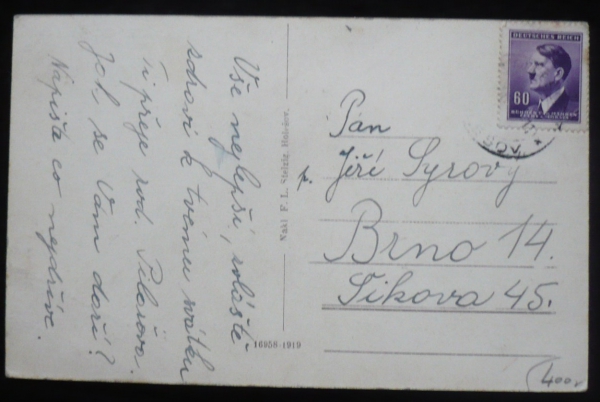 Vše nejlepší, zvláště
zdraví k tvému svátku
ti přeje rod. Pilařova.
Jak se Vám daří?
Napište co nejdříve.
Nakl. F. L. Stelzig, Holešov.
16958-1919
DEUTSCHES REICH
60
BÖHMEN U. MÄHREN
ČECHY A MORAVA
Pan
p. Jiří Syrový
Brno 14.
Sikova 45.